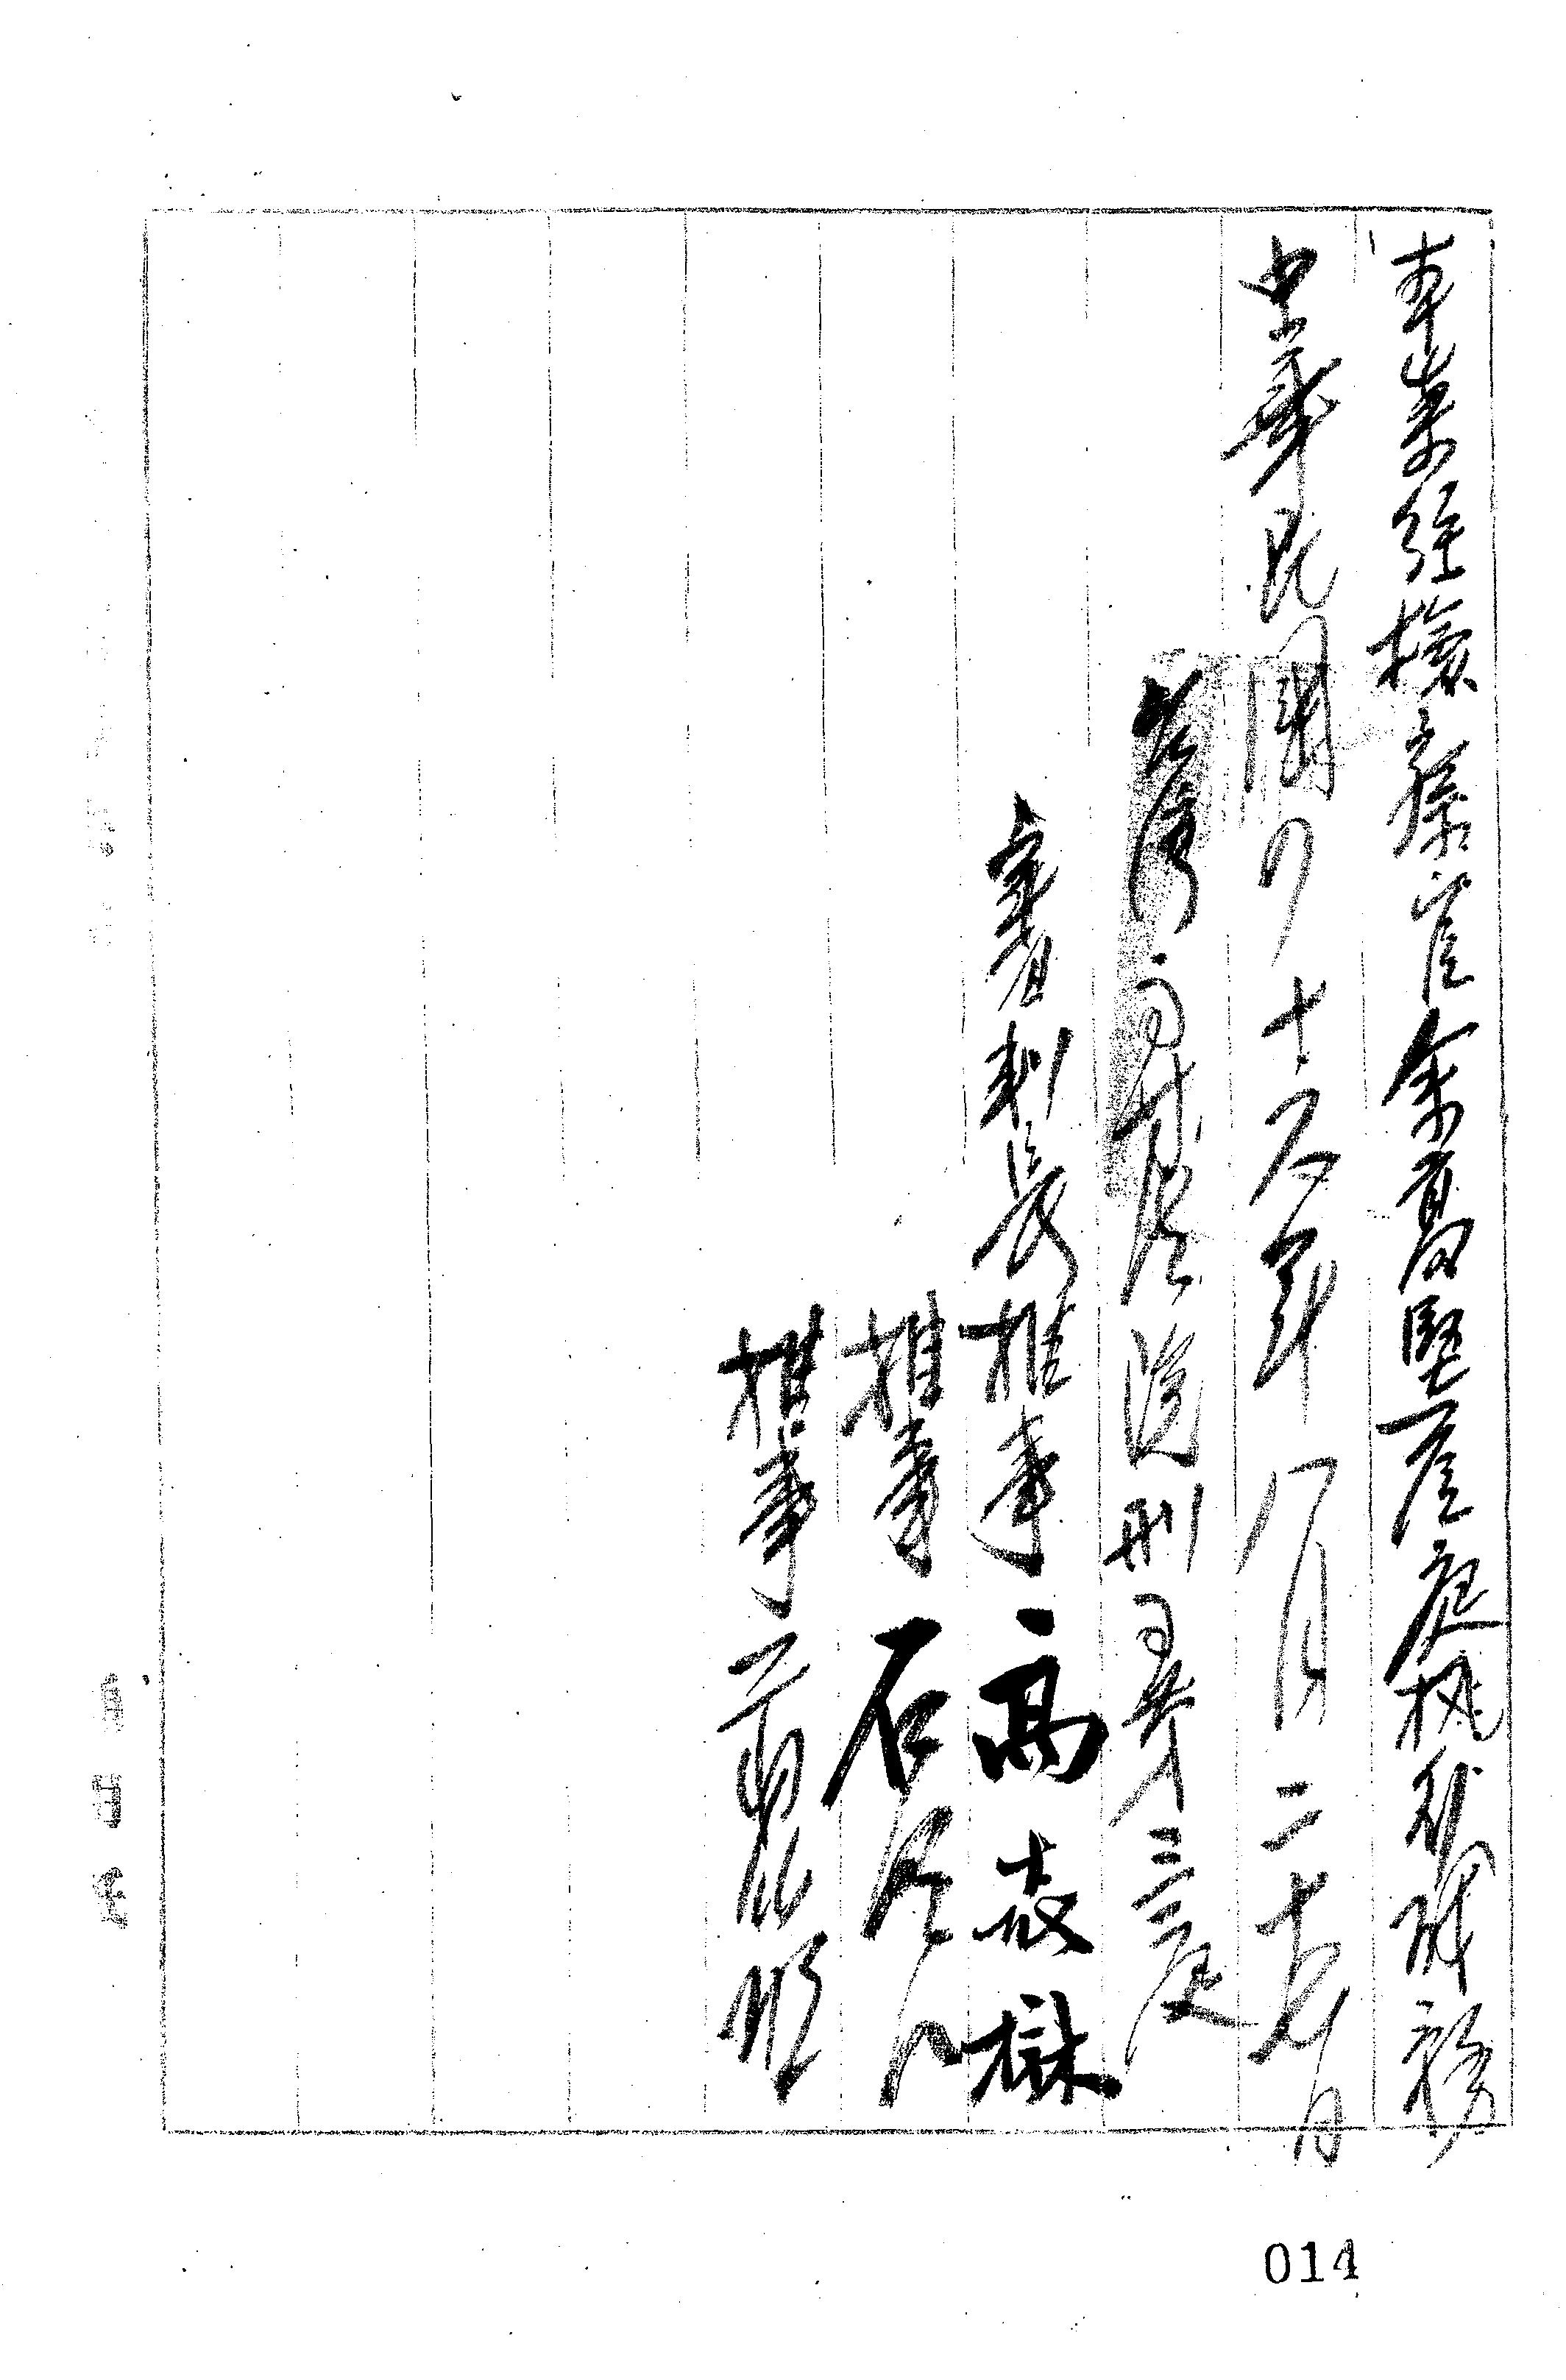 本案經檢察官余高堅蒞庭執行職務
中華民國四十六年八月二十日
臺灣高等法院刑事第三庭
審判長推事 高
推事 石
推事
014